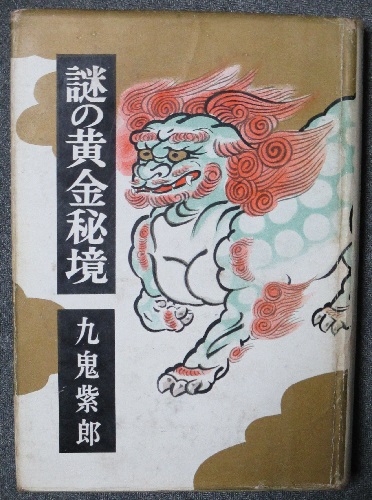 謎の黄金秘境
九鬼紫郎